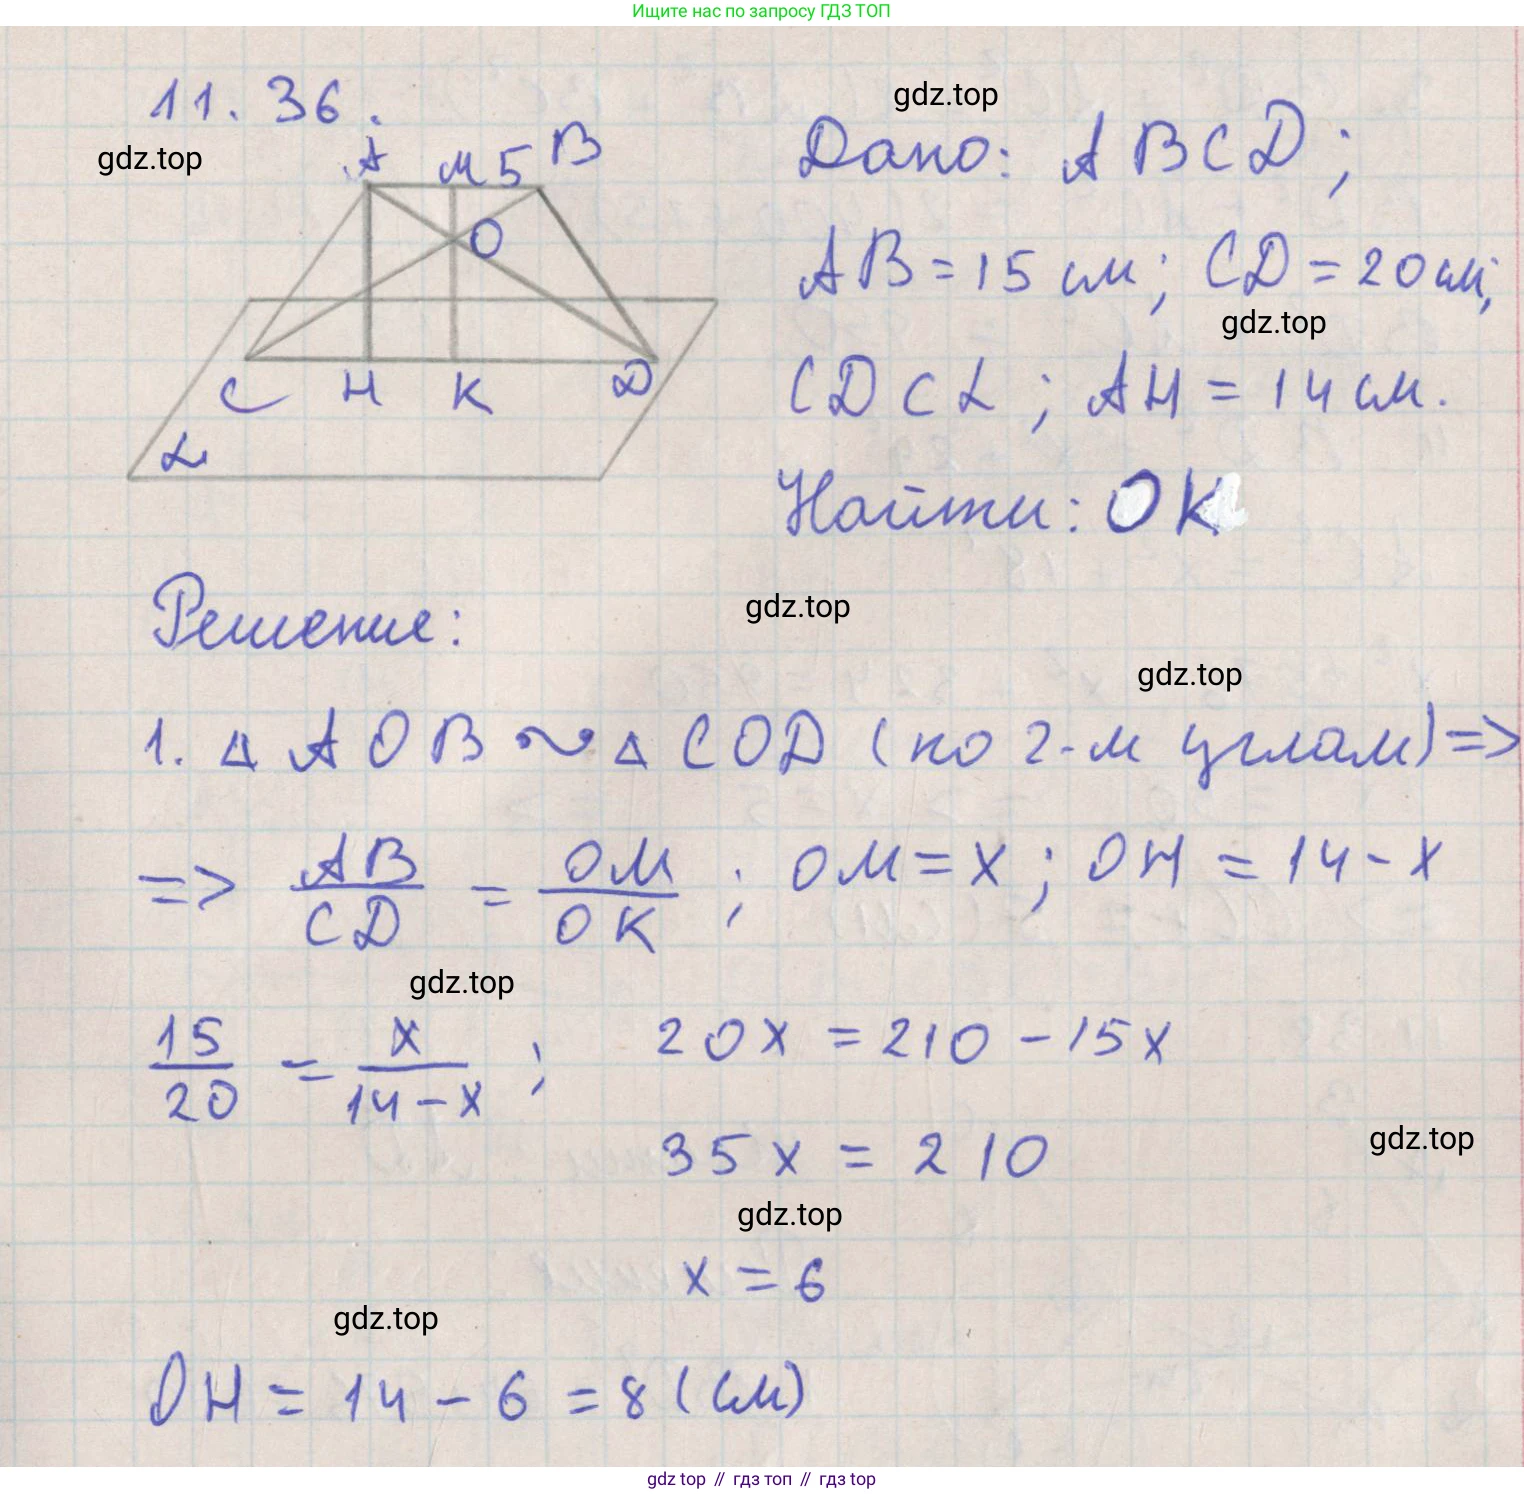 Ищите нас по запросу ГДЗ ТОП
11.36.
gdz.top
A M 5 B
O
C H K D
α
gdz.top
Дано: ABCD;
AB = 15 см; CD = 20 см;
gdz.top
CD ⊂ α; AH = 14 см.
Найти: OK
Решение:
gdz.top
gdz.top
1. △ AOB ~ △ COD (по 2-м углам) =>
=> AB/CD = OM/OK ; OM = x; OH = 14 - x
gdz.top
15/20 = x/14-x ; 20x = 210 - 15x
35x = 210
gdz.top
gdz.top
x = 6
gdz.top
OH = 14 - 6 = 8 (см)
gdz top // гдз топ // гдз top